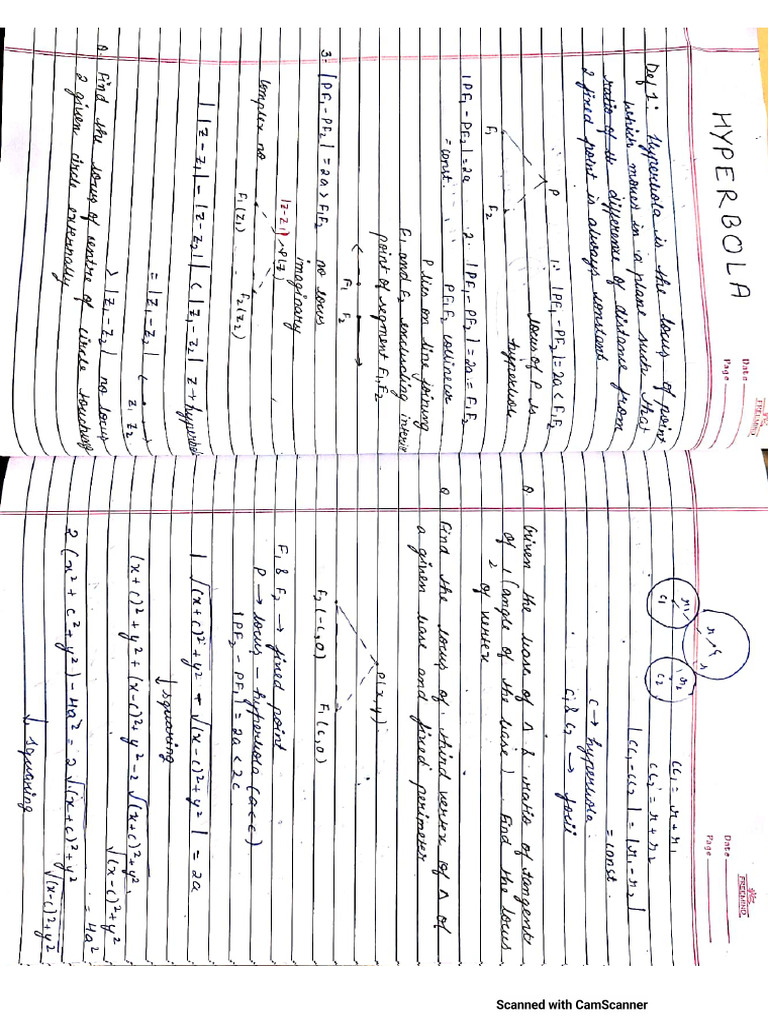 Date
Page
FREEMIND
HYPERBOLA
Def 1: Hyperbola is the locus of point
which moves in a plane such that
ratio of the difference of distance from
2 fixed point is always constant
P
F₁ F₂
1. |PF₁ - PF₂| = 2a < F₁F₂
locus of P is
hyperbola
|PF₁ - PF₂| = 2a
= const.
2. |PF₁ - PF₂| = 2a = F₁F₂
PF₁F₂ collinear
P lies on line joining
F₁ and F₂ excluding interior
point of segment F₁F₂
F₁ F₂
3. |PF₁ - PF₂| = 2a > F₁F₂ no locus
imaginary
complex no
|z-z₁| P(z)
F₁(z₁) F₂(z₂)
| |z-z₁| - |z-z₂| | < |z₁-z₂| z → hyperbola
= |z₁-z₂|
z₁ z₂
> |z₁-z₂| no locus
Q. Find the locus of centre of circle touching
2 given circle externally
Date
Page
FREEMIND
r₁ r r r₂
C₁ C C₂
CC₁ = r + r₁
CC₂ = r + r₂
|CC₁ - CC₂| = |r₁ - r₂|
= const
C → hyperbola
C₁ & C₂ → focii
Q Given the base of Δ & ratio of tangents
of (angle of the base). Find the locus
of vertex
Q Find the locus of third vertex of Δ of
a given base and fixed perimeter
P(x,y)
F₂(-c,0) F₁(c,0)
F₁ & F₂ → fixed point
P → locus - hyperbola (a<c)
|PF₂ - PF₁| = 2a < 2c
| √(x+c)²+y² - √(x-c)²+y² | = 2a
↓ squaring
(x+c)²+y²+(x-c)²+y²-2 √(x+c)²+y²
√(x-c)²+y² = 4a²
2(x²+c²+y²) - 4a² = 2 √(x+c)²+y² √(x-c)²+y²
↓ squaring
Scanned with CamScanner